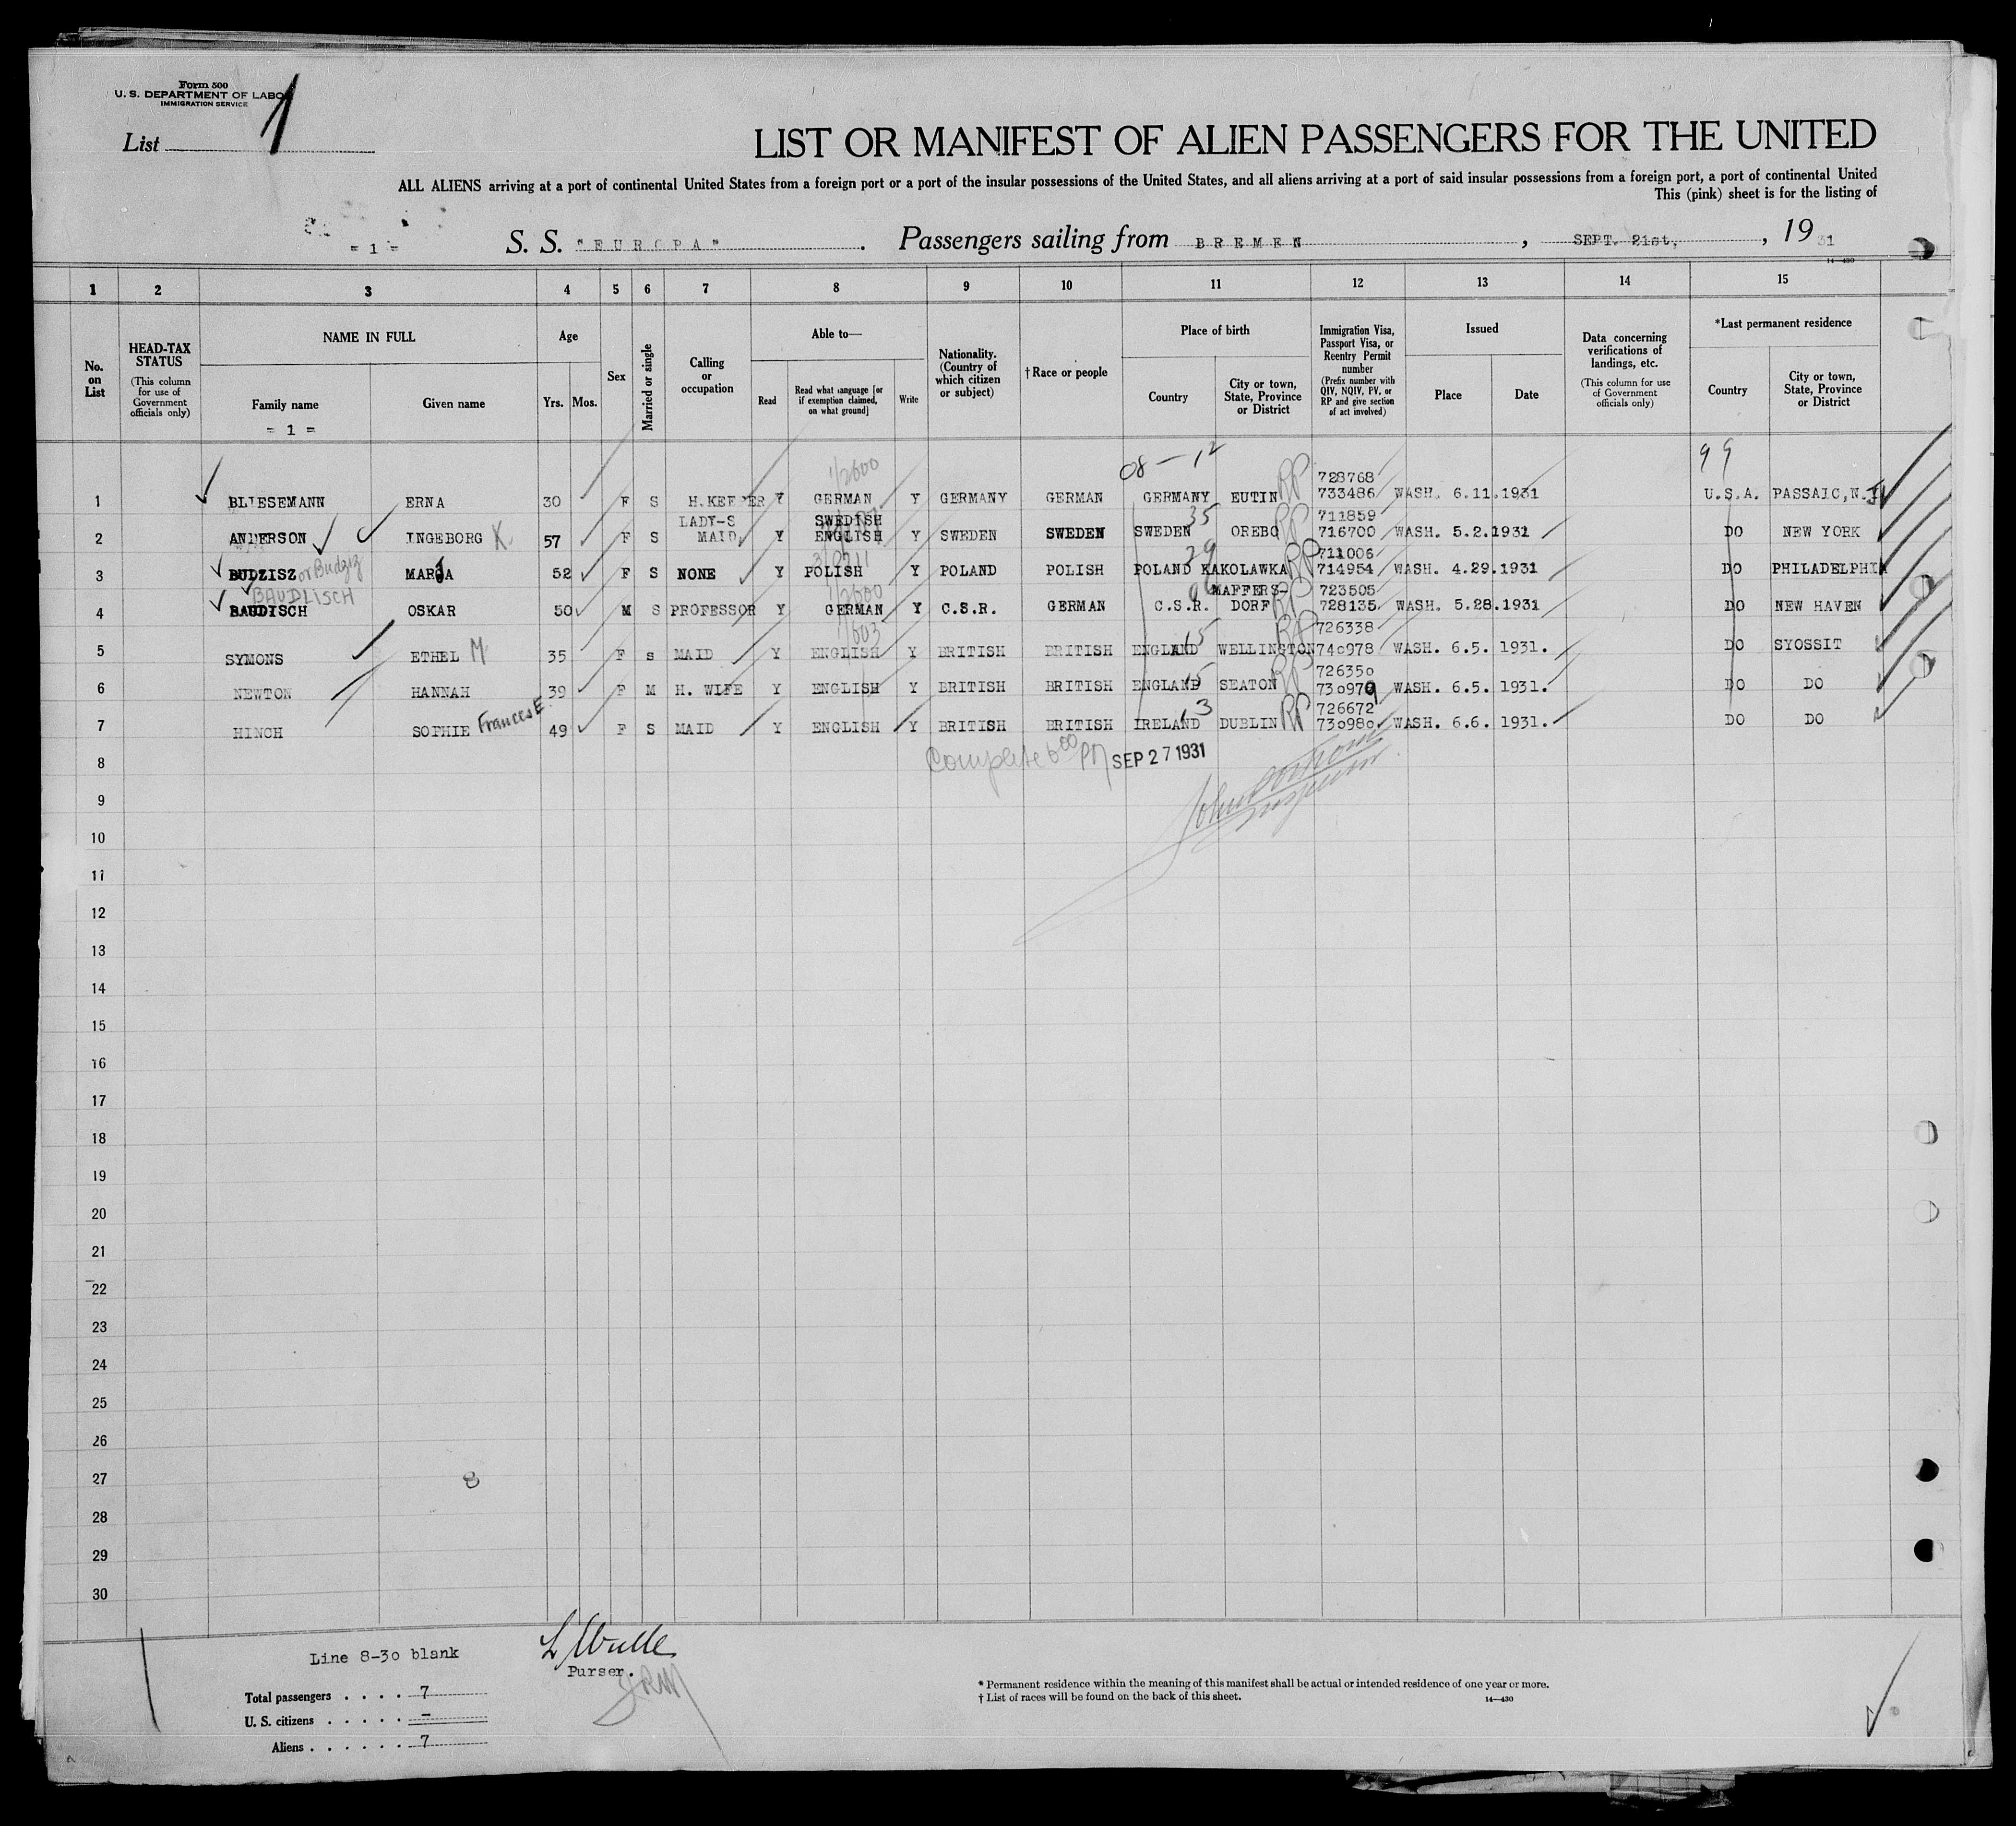 Form 500
U. S. DEPARTMENT OF LABOR
IMMIGRATION SERVICE
List 1
LIST OR MANIFEST OF ALIEN PASSENGERS FOR THE UNITED
ALL ALIENS arriving at a port of continental United States from a foreign port or a port of the insular possessions of the United States, and all aliens arriving at a port of said insular possessions from a foreign port, a port of continental United
This (pink) sheet is for the listing of
= 1 = S. S. "EUROPA" . Passengers sailing from BREMEN , SEPT. 21st, , 1931
14—430
1 2 3 4 5 6 7 8 9 10 11 12 13 14 15
No. on List
HEAD-TAX STATUS
(This column for use of Government officials only)
NAME IN FULL
Family name
= 1 =
Given name
Age
Yrs. Mos.
Sex
Married or single
Calling or occupation
Able to—
Read
Read what language [or if exemption claimed, on what ground]
Write
Nationality. (Country of which citizen or subject)
†Race or people
Place of birth
Country
City or town, State, Province or District
Immigration Visa, Passport Visa, or Reentry Permit number
(Prefix number with QIV, NQIV, PV, or RP and give section of act involved)
Issued
Place
Date
Data concerning verifications of landings, etc.
(This column for use of Government officials only)
*Last permanent residence
Country
City or town, State, Province or District
1/2600 08-12 728768 99
1 BLIESEMANN ERNA 30 F S H.KEEPER Y GERMAN Y GERMANY GERMAN GERMANY EUTIN RP 733486 WASH. 6.11.1931 U.S.A. PASSAIC, N.J.
LADY-S SWEDISH 35 711859
2 ANDERSON INGEBORG K. 57 F S MAID Y ENGLISH Y SWEDEN SWEDEN SWEDEN OREBO RP 716700 WASH. 5.2.1931 DO NEW YORK
29 711006
3 BUDZISZ or Budziz MARJA 52 F S NONE Y POLISH Y POLAND POLISH POLAND KAKOLAWKA RP 714954 WASH. 4.29.1931 DO PHILADELPHIA
BAUDLISCH 1/2600 06 MAFFERS- 723505
4 BAUDISCH OSKAR 50 M S PROFESSOR Y GERMAN Y C.S.R. GERMAN C.S.R. DORF RP 728135 WASH. 5.28.1931 DO NEW HAVEN
1/603 15 726338
5 SYMONS ETHEL M 35 F S MAID Y ENGLISH Y BRITISH BRITISH ENGLAND WELLINGTON RP 740978 WASH. 6.5. 1931. DO SYOSSIT
15 726350
6 NEWTON HANNAH 39 F M H. WIFE Y ENGLISH Y BRITISH BRITISH ENGLAND SEATON RP 730979 WASH. 6.5. 1931. DO DO
13 726672
7 HINCH SOPHIE Frances E. 49 F S MAID Y ENGLISH Y BRITISH BRITISH IRELAND DUBLIN RP 730980 WASH. 6.6. 1931. DO DO
8 Complete 6 00 PM SEP 27 1931
9
10 Inspector
11
12
13
14
15
16
17
18
19
20
21
22
23
24
25
26
27 8
28
29
30
Line 8-30 blank
Purser.
Total passengers . . . . 7
U. S. citizens . . . . . —
Aliens . . . . . . 7
* Permanent residence within the meaning of this manifest shall be actual or intended residence of one year or more.
† List of races will be found on the back of this sheet. 14—430